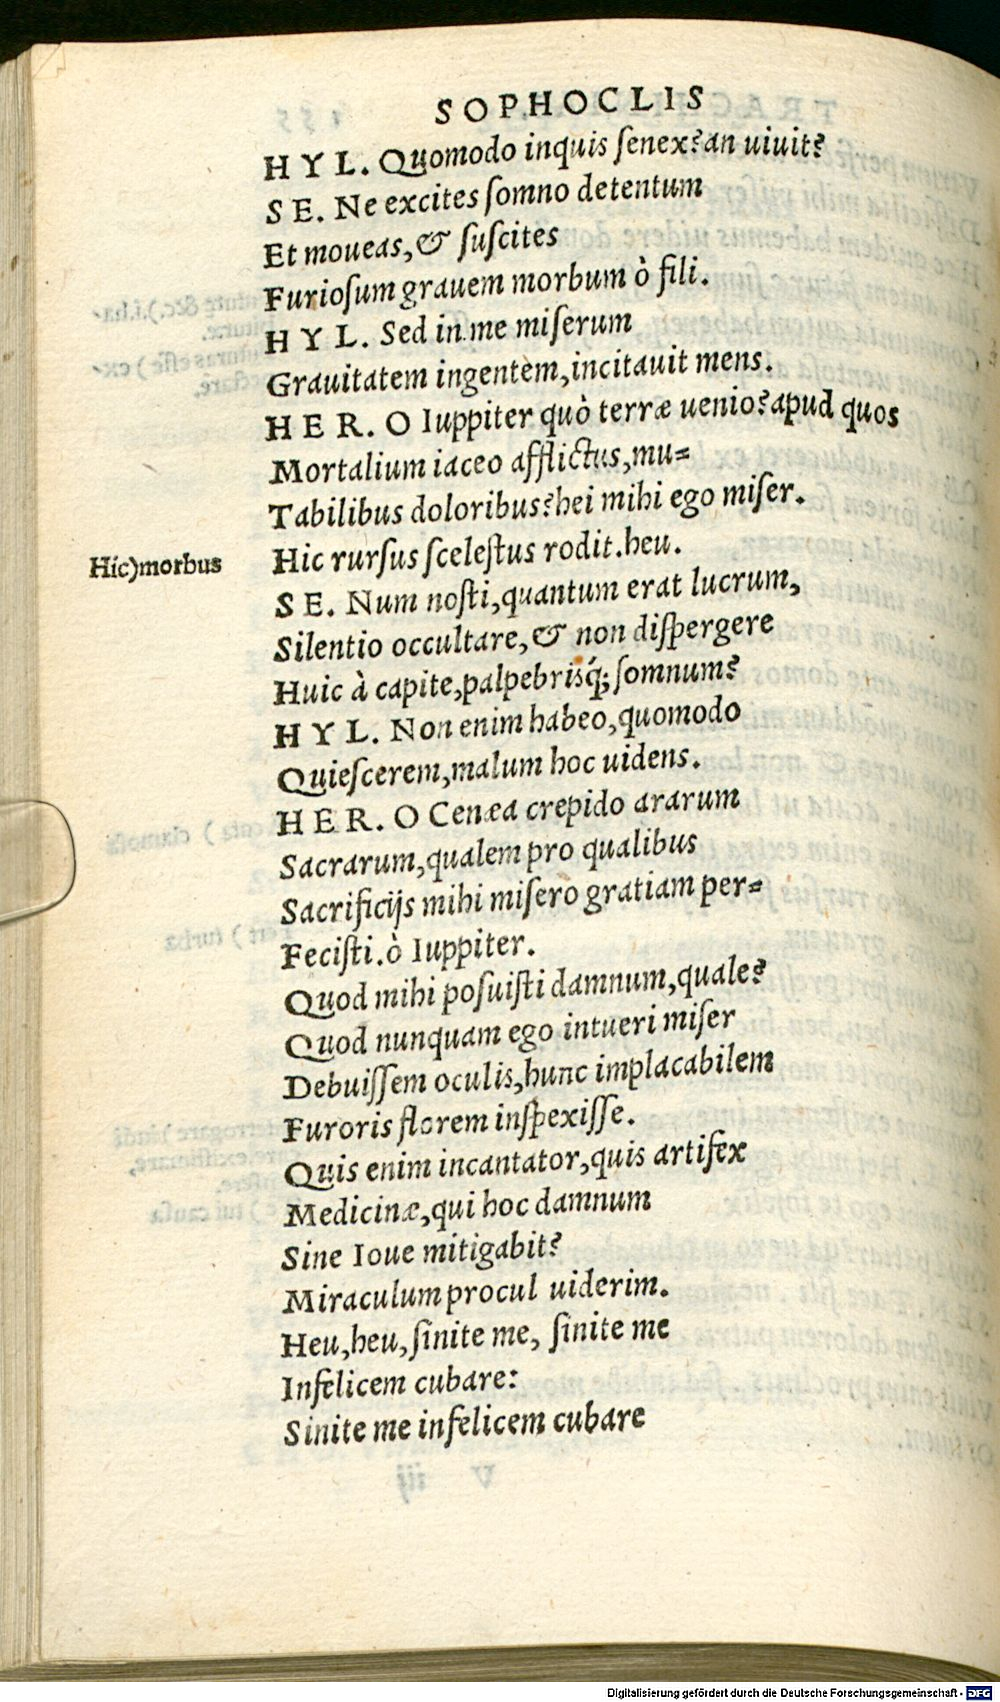 SOPHOCLIS
HYL. Quomodo inquis ſenex? an uiuit?
SE. Ne excites ſomno detentum
Et moueas, & ſuſcites
Furioſum grauem morbum ò fili.
HYL. Sed in me miſerum
Grauitatem ingentem, incitauit mens.
HER. O Iuppiter quò terræ uenio? apud quos
Mortalium iaceo afflictus, mu=
Tabilibus doloribus? hei mihi ego miſer.
Hic)morbus Hic rurſus ſceleſtus rodit. heu.
SE. Num noſti, quantum erat lucrum,
Silentio occultare, & non diſpergere
Huic à capite, palpebrisq́; ſomnum?
HYL. Non enim habeo, quomodo
Quieſcerem, malum hoc uidens.
HER. O Cenæa crepido ararum
Sacrarum, qualem pro qualibus
Sacrificijs mihi miſero gratiam per=
Feciſti. ò Iuppiter.
Quod mihi poſuiſti damnum, quale?
Quod nunquam ego intueri miſer
Debuiſſem oculis, hunc implacabilem
Furoris florem inſpexiſſe.
Quis enim incantator, quis artifex
Medicinæ, qui hoc damnum
Sine Ioue mitigabit?
Miraculum procul uiderim.
Heu, heu, ſinite me, ſinite me
Infelicem cubare:
Sinite me infelicem cubare
Digitalisierung gefördert durch die Deutsche Forschungsgemeinschaft - DFG